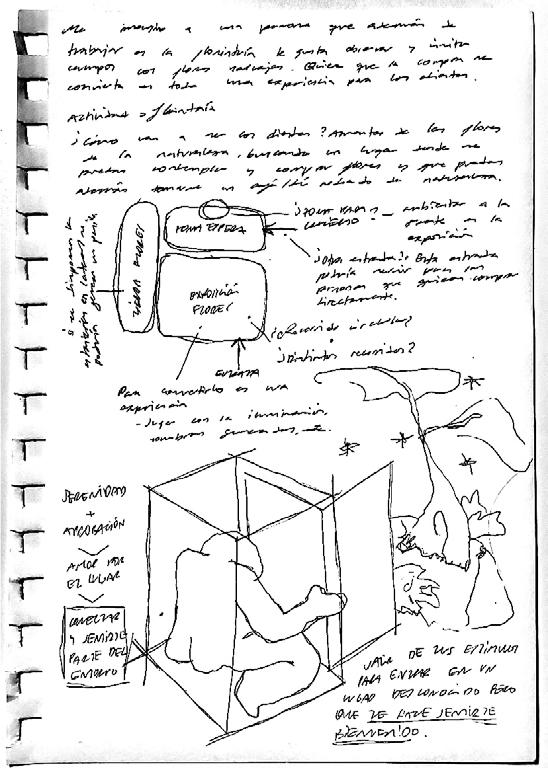 Me imagino a una persona que además de
trabajar en la floristería le gusta observar y visitar
campos con flores salvajes. Quiere que la compra se
convierta en toda una experiencia para los clientes.
Actividad = floristería
¿Cómo van a ser los clientes? Amantes de las flores
de la naturaleza, buscando un lugar donde se
puedan contemplar y comprar flores y que puedan
además tomarse un café rodeado de naturaleza.
¿ZONA PARA
ambientar a la
gente en la
exposición
ZONA ESPERA
¿Otra entrada? Esta entrada
podría servir para las
personas que quieran comprar
directamente.
EXPOSICIÓN
FLORES
¿Recorrido circular?
¿Distintos recorridos?
ENTRADA
Para convertirlo en una
experiencia
- Jugar con la iluminación,
sombras generadas, etc.
SERENIDAD
+
APROBACIÓN
AMOR POR
EL LUGAR
CONECTAR
Y SENTIRTE
PARTE DEL
ENTORNO
SALIR DE TUS ESTÍMULOS
PARA ENTRAR EN UN
LUGAR DESCONOCIDO PERO
QUE TE HACE SENTIRTE
BIENVENIDO.